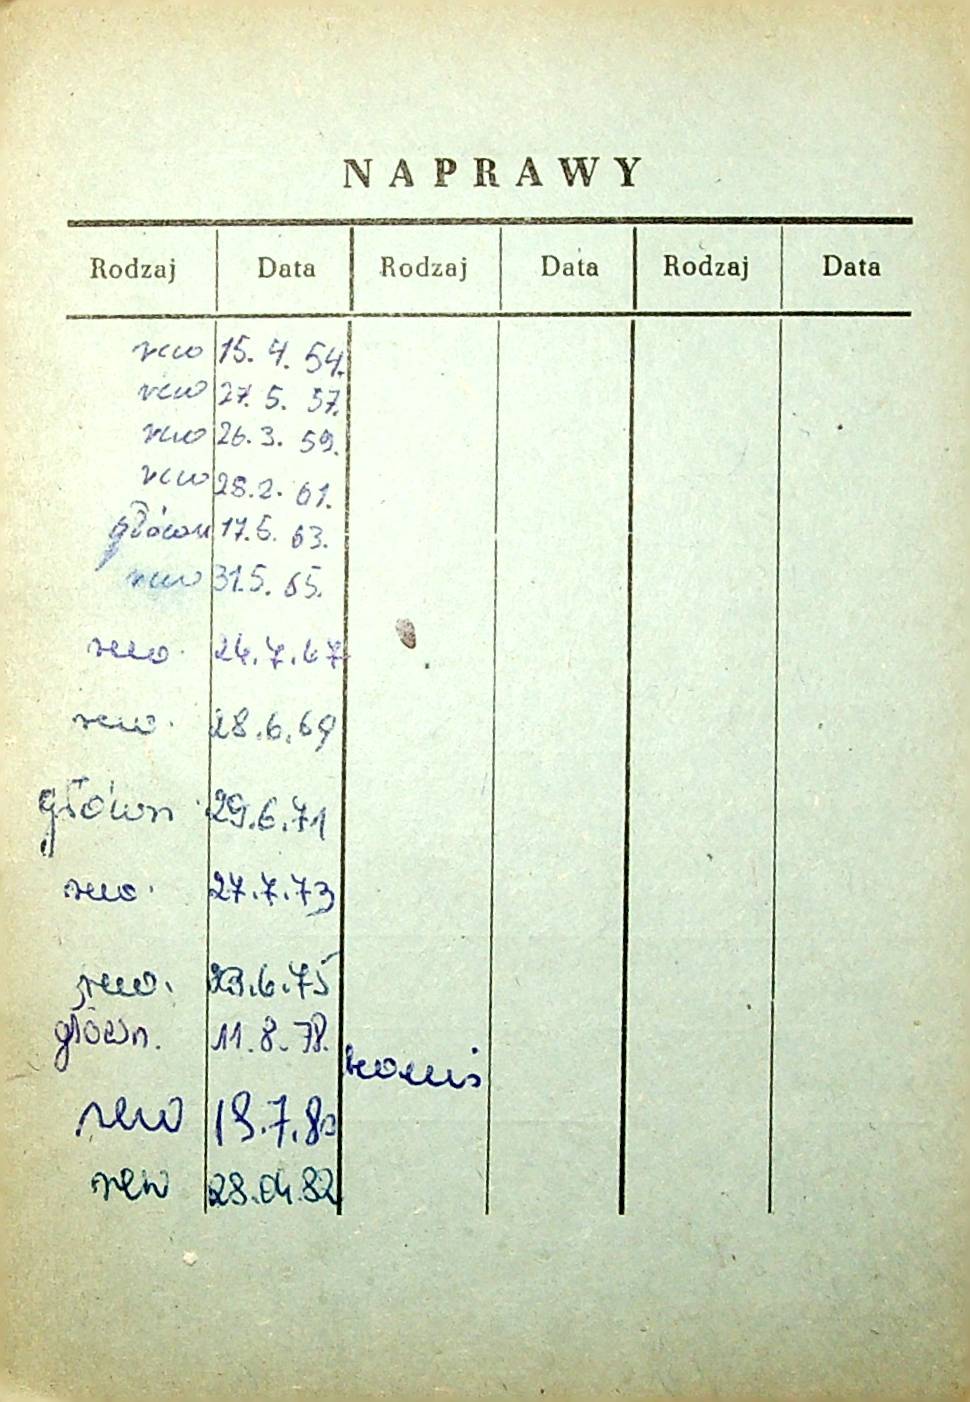 NAPRAWY
Rodzaj Data Rodzaj Data Rodzaj Data
rew 15. 4. 54.
rew 27. 5. 57.
rew 26. 3. 59.
rew 28. 2. 61.
główn 17. 5. 63.
rew 31.5. 65.
rew. 24.7.67
rew. 28.6.69
główn 29.6.71
rew. 27.7.73
rew. 23.6.75
główn. 11.8.78.
rew 19.7.80
rew 28.04.82